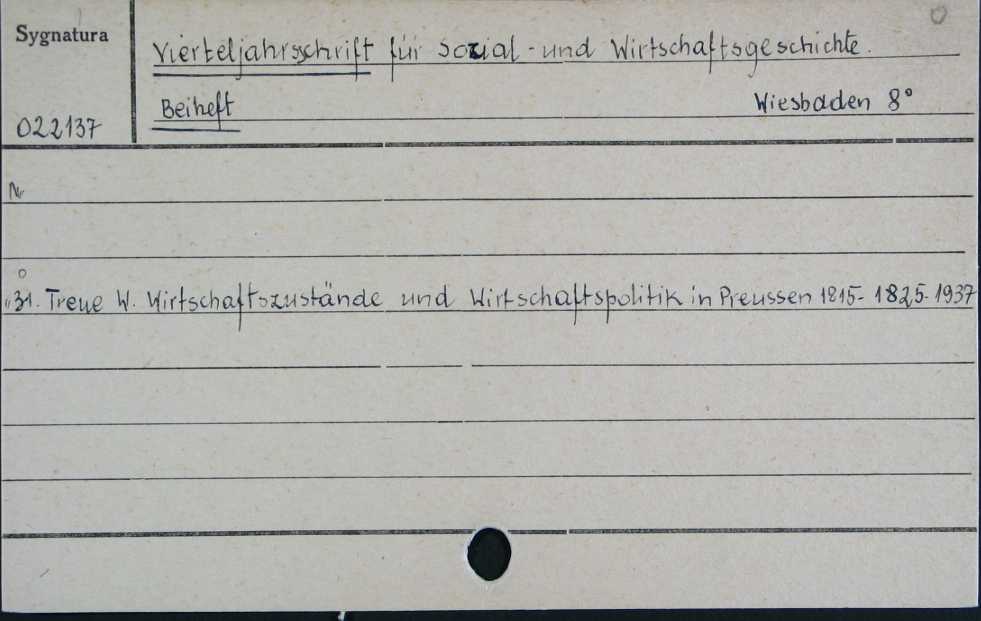 Sygnatura
Vierteljahrsschrift für Sozial-und Wirtschaftsgeschichte.
Beiheft Wiesbaden 8°
022137
Nr
31. Treue W. Wirtschaftszustände und Wirtschaftspolitik in Preussen 1815-1825. 1937